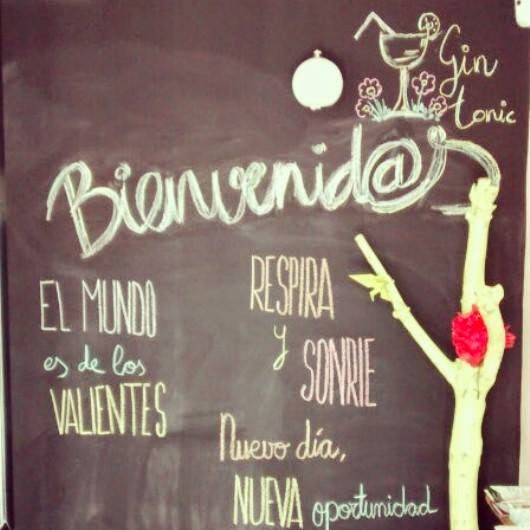 Gin
tonic
Bienvenid@s
EL MUNDO
es de los
VALIENTES
RESPIRA
y
SONRIE
Nuevo día,
NUEVA oportunidad